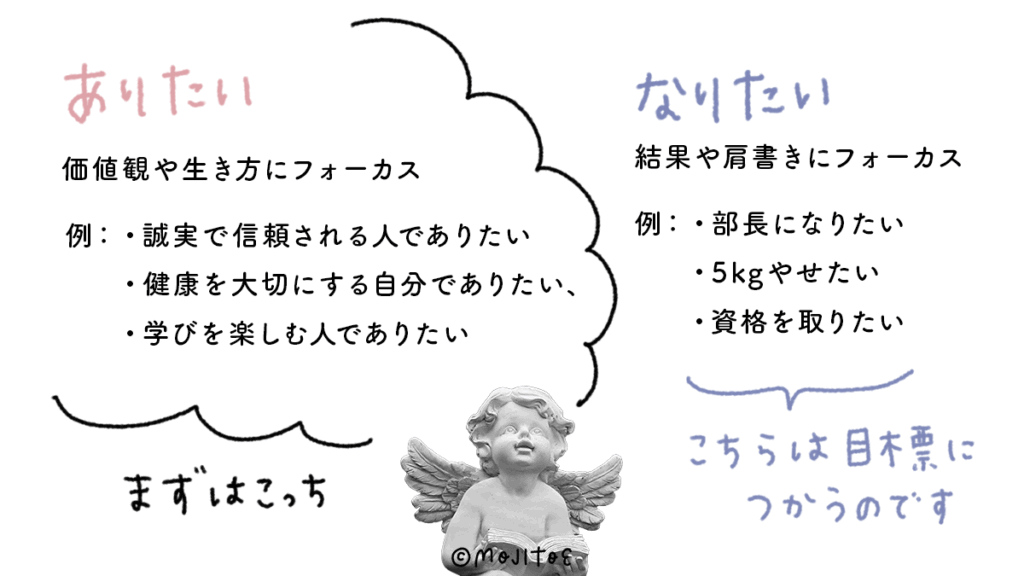 ありたい
価値観や生き方にフォーカス
例：・誠実で信頼される人でありたい
・健康を大切にする自分でありたい、
・学びを楽しむ人でありたい
まずはこっち
なりたい
結果や肩書きにフォーカス
例：・部長になりたい
・5kgやせたい
・資格を取りたい
こちらは目標に
つかうのです
©MOJITOE